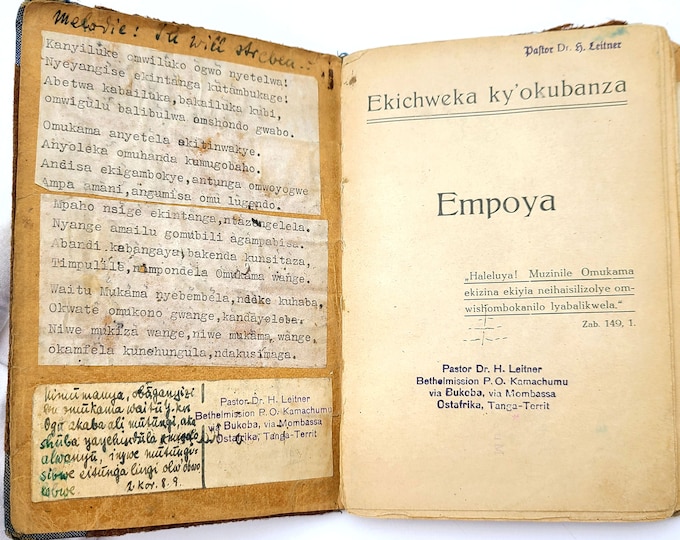 Melodie: Ich will streben..
Kanyiluke omwiluko ogwo nyetelwa!
Nyeyangise ekintanga kutambukage!
Abetwa kabailuka, bakailuka kubi,
omwigulu balibulwa omshondo gwabo.
Omukama anyetela akitinwakye.
Anyoleka omuhanda kumugobaho.
Andisa ekigambokye, antunga omwoyogwe
Ampa amani, angumisa omu lugendo.
Mpaho nsige ekintanga, ntazangelela.
Nyange amailu gomubili agampabisa.
Abandi kabangaya, bakenda kunsitaza,
Timpulila, nimpondela Omukama wange.
Waitu Mukama nyebembela, ndeke kuhaba,
Okwate omikono gwange, kandayeleba.
Niwe mukiza wange, niwe mukama wange,
okamfela kunshungula, ndakusimaga.
obuganyizi
omukama waitu
akaba ali mutungi, aka
alwanyu, inywe mutungi-
2. Kor. 8. 9.
Pastor Dr. H. Leitner
Bethelmission P. O. Kamachumu
via Bukoba, via Mombassa
Ostafrika, Tanga-Territ
Pastor Dr. H. Leitner
Ekichweka ky'okubanza
Empoya
„Haleluya! Muzinile Omukama
ekizina ekiyia neihaisilizolye om-
wishombokanilo lyabalikwela."
Zab. 149, 1.
Pastor Dr. H. Leitner
Bethelmission P. O. Kamachumu
via Bukoba, via Mombassa
Ostafrika, Tanga-Territ